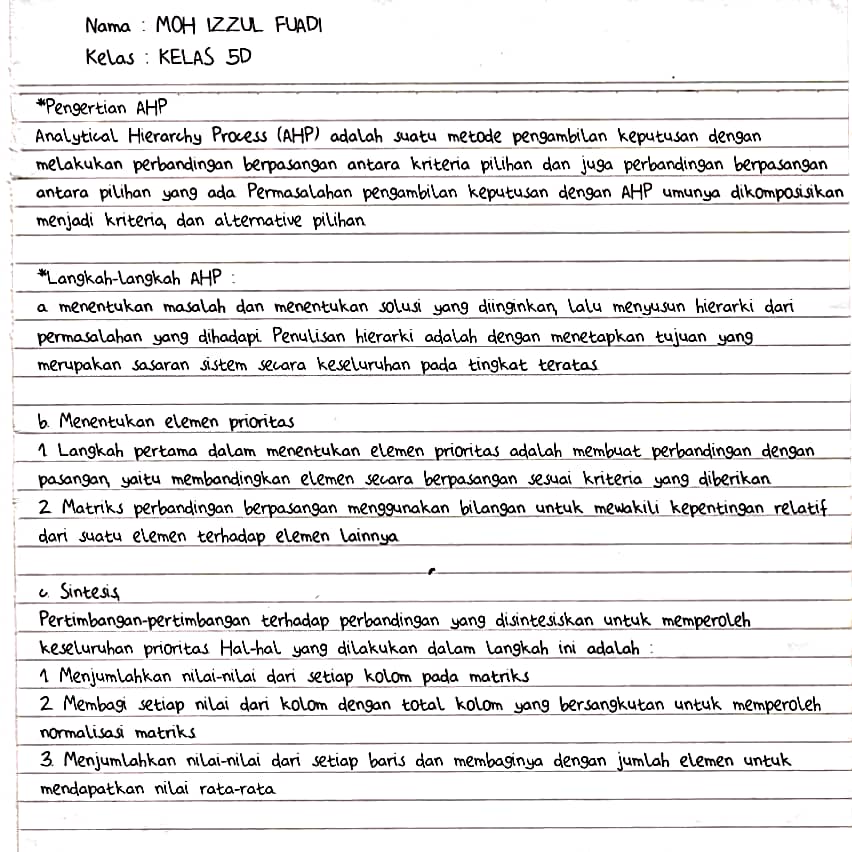 Nama : MOH IZZUL FUADI
Kelas : KELAS 5D
*Pengertian AHP
Analytical Hierarchy Process (AHP) adalah suatu metode pengambilan keputusan dengan
melakukan perbandingan berpasangan antara kriteria pilihan dan juga perbandingan berpasangan
antara pilihan yang ada Permasalahan pengambilan keputusan dengan AHP umunya dikomposisikan
menjadi kriteria, dan alternative pilihan
*Langkah-langkah AHP :
a menentukan masalah dan menentukan solusi yang diinginkan, lalu menyusun hierarki dari
permasalahan yang dihadapi. Penulisan hierarki adalah dengan menetapkan tujuan yang
merupakan sasaran sistem secara keseluruhan pada tingkat teratas
b. Menentukan elemen prioritas
1 Langkah pertama dalam menentukan elemen prioritas adalah membuat perbandingan dengan
pasangan, yaitu membandingkan elemen secara berpasangan sesuai kriteria yang diberikan
2 Matriks perbandingan berpasangan menggunakan bilangan untuk mewakili kepentingan relatif
dari suatu elemen terhadap elemen lainnya
c. Sintesis,
Pertimbangan-pertimbangan terhadap perbandingan yang disintesiskan untuk memperoleh
keseluruhan prioritas Hal-hal yang dilakukan dalam langkah ini adalah :
1 Menjumlahkan nilai-nilai dari setiap kolom pada matriks
2 Membagi setiap nilai dari kolom dengan total kolom yang bersangkutan untuk memperoleh
normalisasi matriks
3. Menjumlahkan nilai-nilai dari setiap baris dan membaginya dengan jumlah elemen untuk
mendapatkan nilai rata-rata